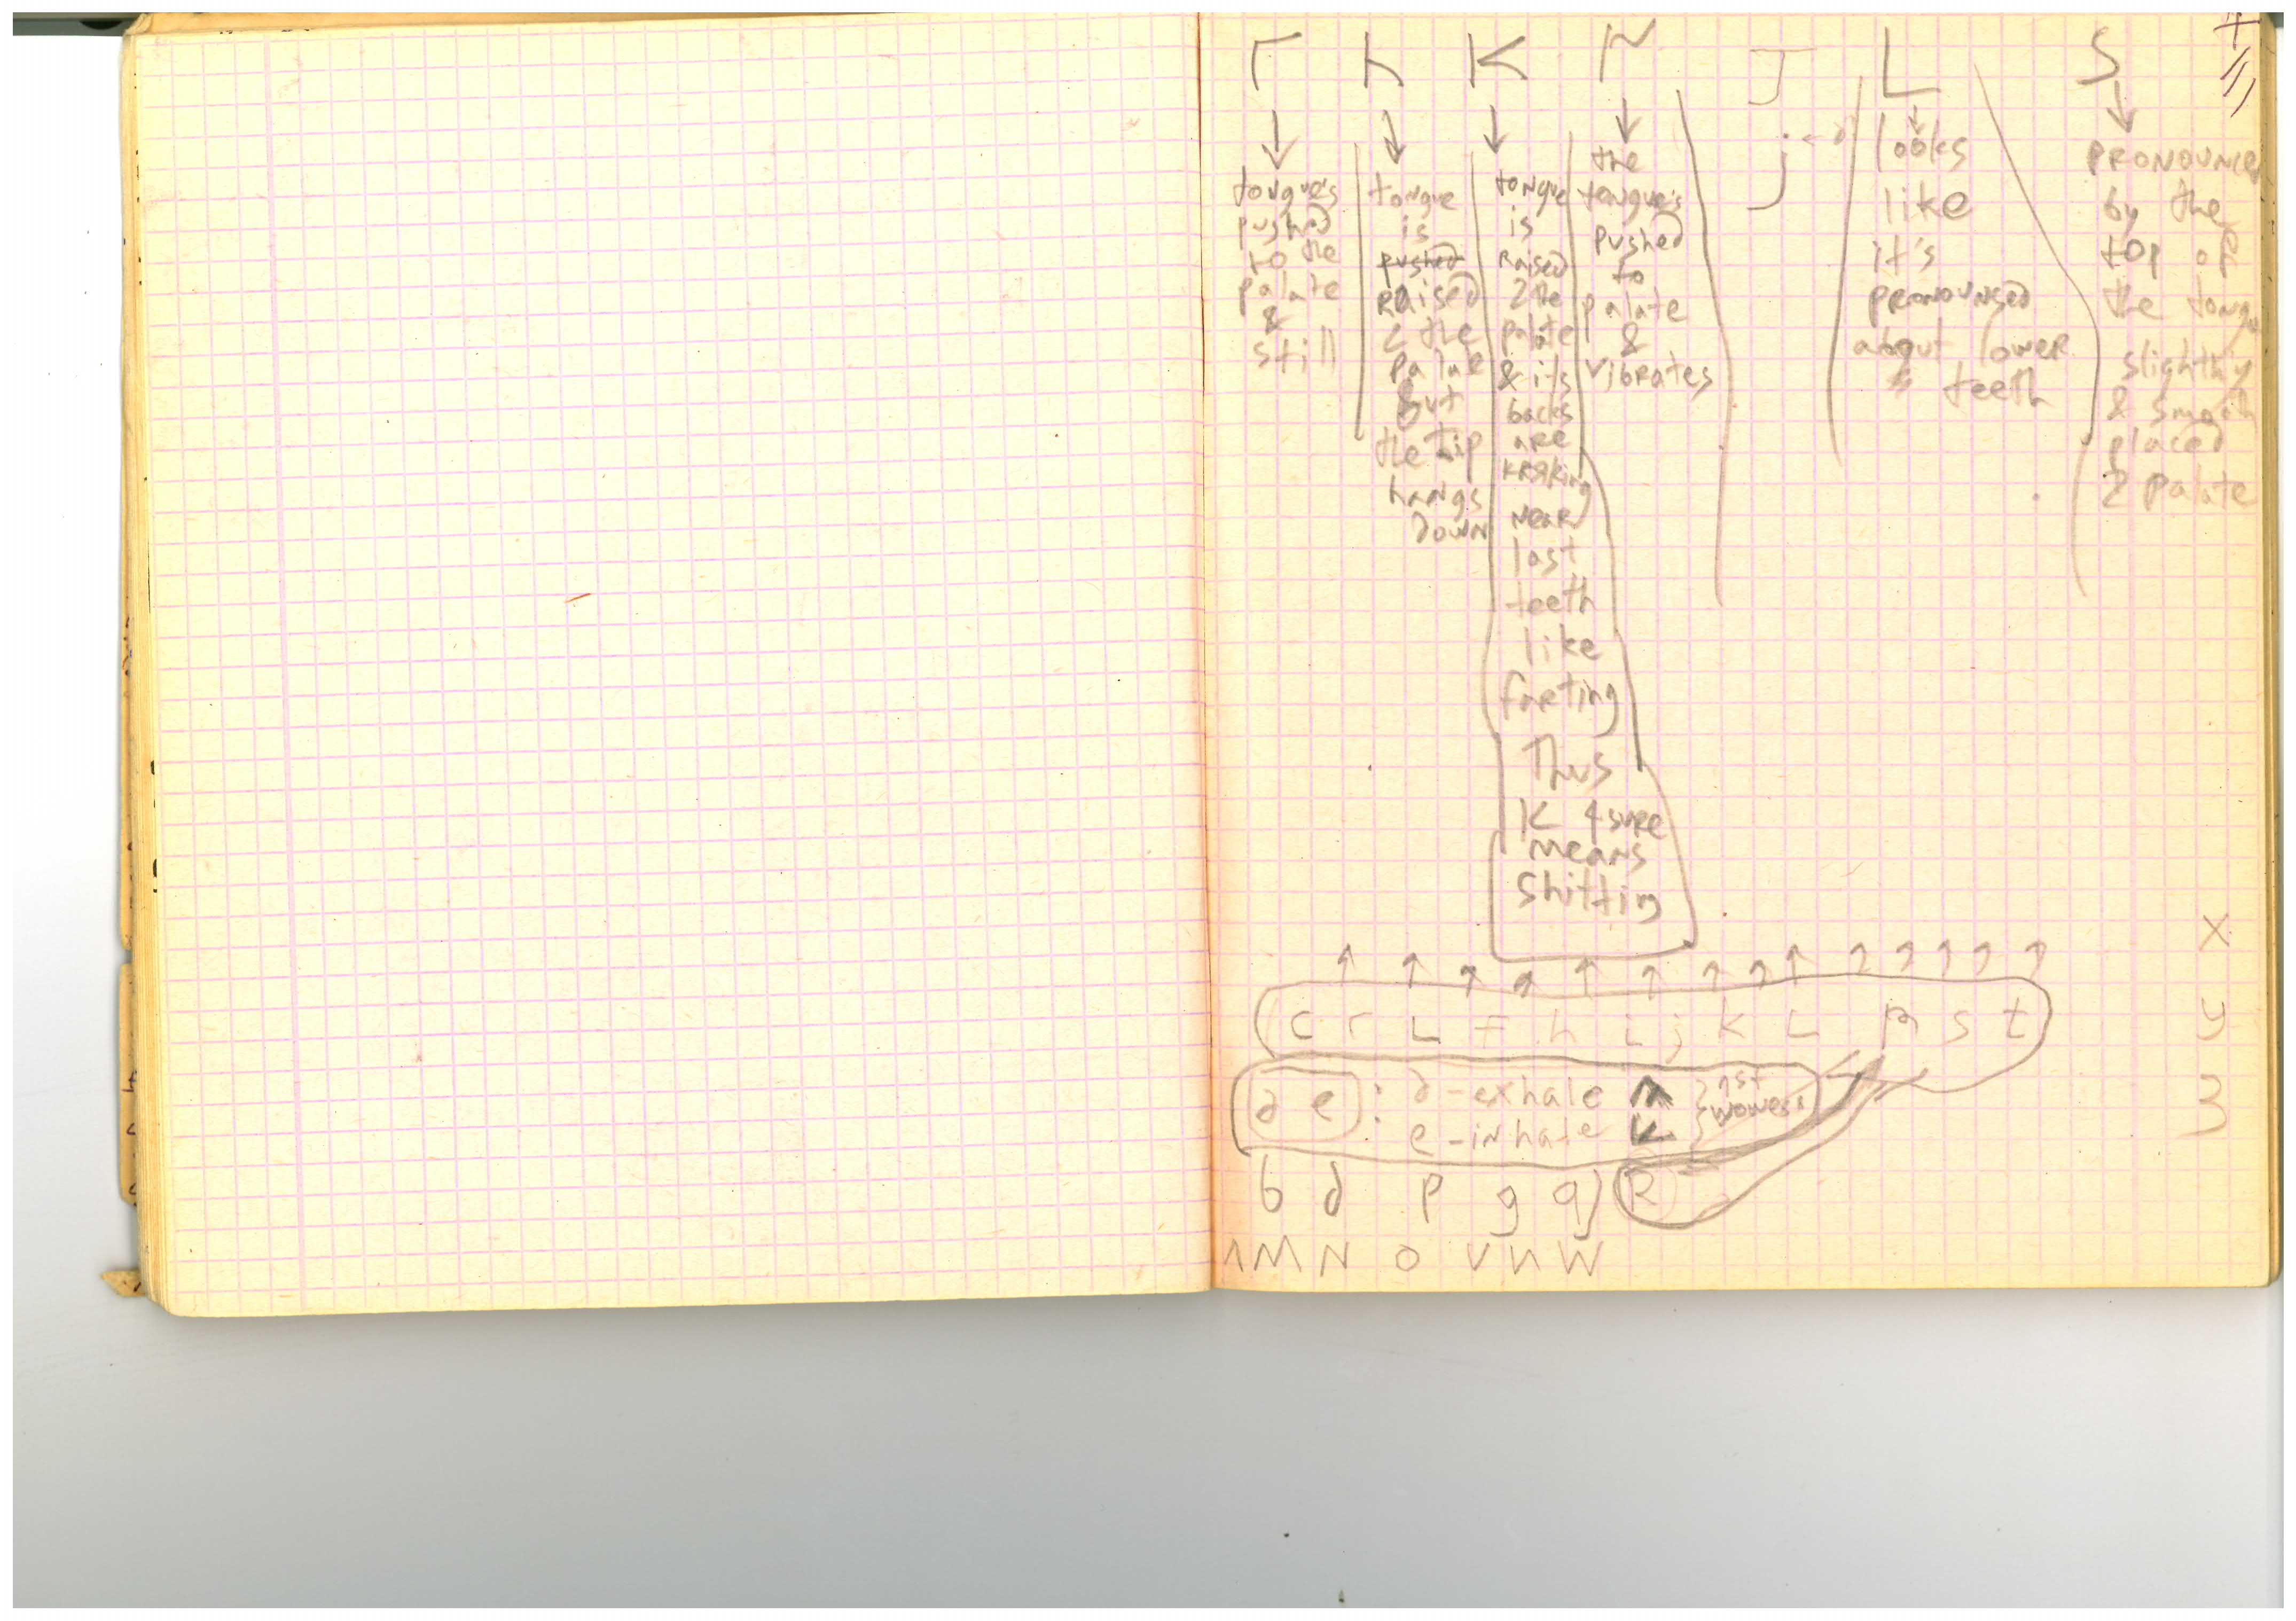 Γ h K Ñ J L S
tongue's
pushed
to the
palate
&
still
tongue
is
pushed
Raised
2 the
palate
But
the tip
hangs
down
tongue
is
Raised
2 the
palate
& its
backs
are
KRaKing
near
last
teeth
like
farting
Thus
K 4 sure
means
Shitting
the
tongue's
pushed
to
palate
&
vibrates
j
looks
like
it's
pronounsed
about lower
teeth
pronounced
by the
top of
the tongue
slightly
& smooth
placed
2 palate
x
y
3
c r L f h i j k L m s t
a e : a - exhale
e - inhale
1st
wowels
b d p g q R
Λ M N o v n W